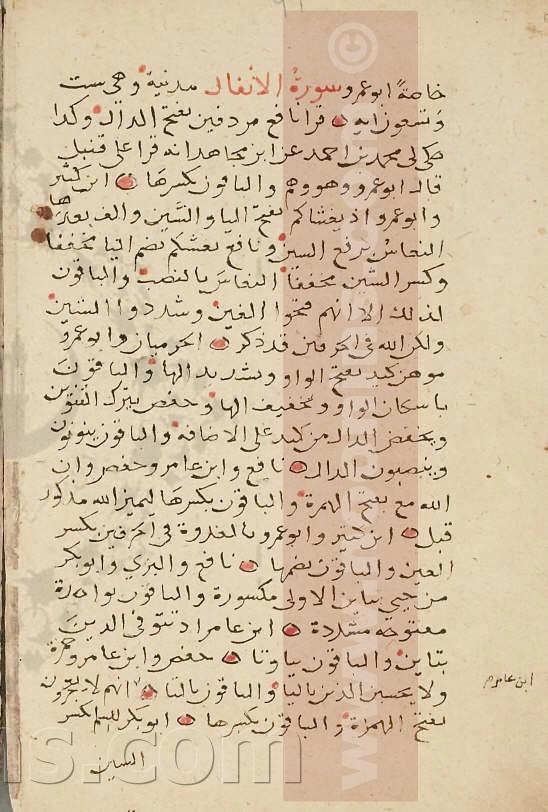 خاصة ابو عمرو سورة الانفال مدنية وهي ست
وسبعون اية قرا نافع مردفين بفتح الدال وكذا
حكى لي محمد بن احمد عن ابن مجاهد انه قرا على قنبل
قال ابو عمرو وهو وهم والباقون بكسرها ابن كثير
وابو عمرو اذ يغشاكم بفتح اليا والشين والف بعدها
النعاس برفع السين ونافع يغشيكم بضم اليا مخففا
وكسر الشين مخففا النعاس بالنصب والباقون
كذلك الا انهم فتحوا الغين وشددوا الشين
ولكن الله في الحرفين قد ذكر الحرميان وابو عمرو
موهن كيد بفتح الواو وتشديد الها والباقون
باسكان الواو وتخفيف الها وحفص بترك التنوين
ويخفض الدال من كيد على الاضافة والباقون ينونون
وينصبون الدال نافع وابن عامر وحفص وان
الله مع بفتح الهمزة والباقون بكسرها ليميز الله مذكور
قبل ابن كثير وابو عمرو بالعدوة في الحرفين بكسر
العين والباقون بضمها نافع والبزي وابو بكر
من حيي بياين الاولى مكسورة والباقون بواحدة
مفتوحة مشددة ابن عامر اذ تتوفى الذين
بتاين والباقون بيا وتا حفص وابن عامر وحمزة
ولا يحسبن الذين باليا والباقون بالتا انهم لا يعجزون
ابن عامر
بفتح الهمزة والباقون بكسرها ابو بكر للسلم بكسر
السين
©